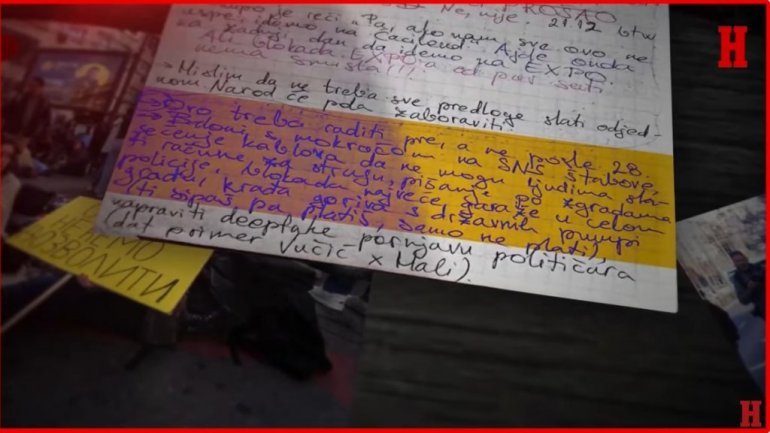 PROŠAO
Ne, nije. 21.12 btw
je reći "Pa, ako nam sve ovo ne
uspe, idemo na Ćacilend. Ajde onda
na zadnji dan da idemo na EXPO.
Ali blokada EXPO-a od pet sati
nema smisla!!!
→ Mislim da ne treba sve predloge slati odjed-
nom. Narod će pola zaboraviti.
→ Ovo treba raditi pre, a ne posle 28.
→ Bidoni s mokraćom na SNS štabove,
sečenje kablova da ne mogu ljudima sla-
ti račune za struju, pisanje po zgradama
policije, blokada najveće garaže u celom
gradu, krađa goriva s državnih pumpi
(ti sipaš pa platiš, samo ne platiš),
napraviti deepfake pornjavu političara
(dat primer Vučić x Mali).
НЕЋЕМО
ОЗВОЛИТИ
H
H